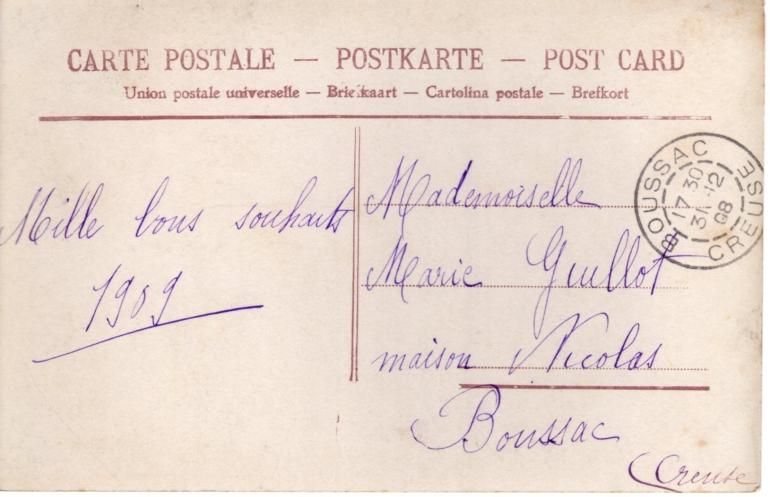 CARTE POSTALE — POSTKARTE — POST CARD
Union postale universelle — Briefkaart — Cartolina postale — Brefkort
Mille bons souhaits
1909
Mademoiselle
Marie Guillot
maison Nicolas
Boussac
Creuse
BOUSSAC
17 30
31 -12
08
CREUSE